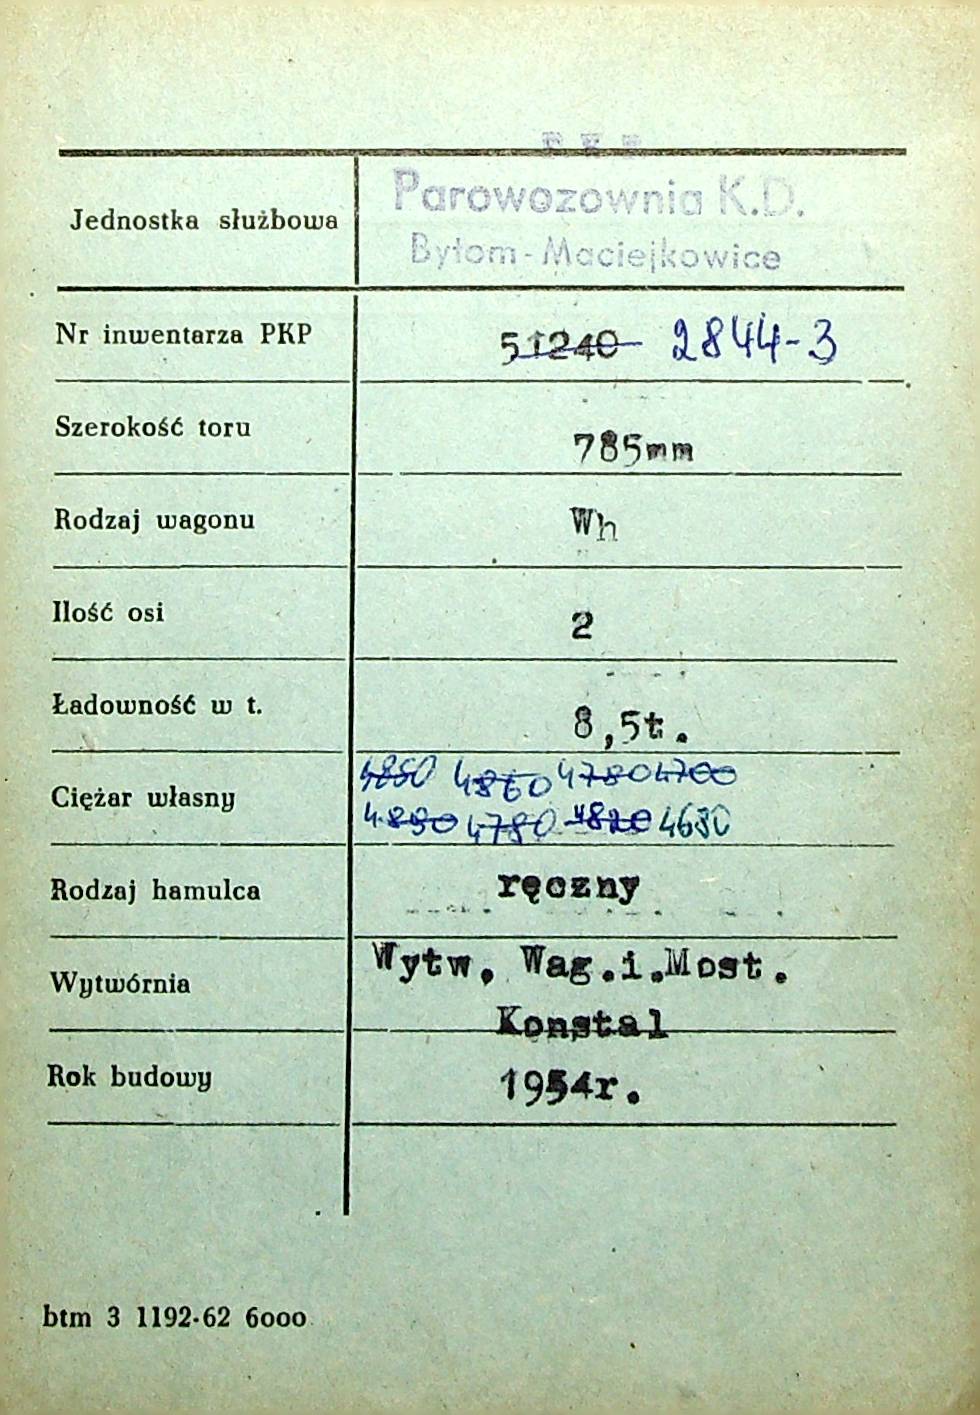 P K P
Parowozownia K.D.
Jednostka służbowa
Bytom-Maciejkowice
Nr inwentarza PKP 51240 2844-3
Szerokość toru 785mm
Rodzaj wagonu Wh
Ilość osi 2
Ładowność w t. 8,5t.
4850 4860 4780 4700
Ciężar własny
4.890 4780 4820 4630
Rodzaj hamulca ręczny
Wytw. Wag.i.Most.
Wytwórnia
Konstal
Rok budowy 1954r.
btm 3 1192-62 6000